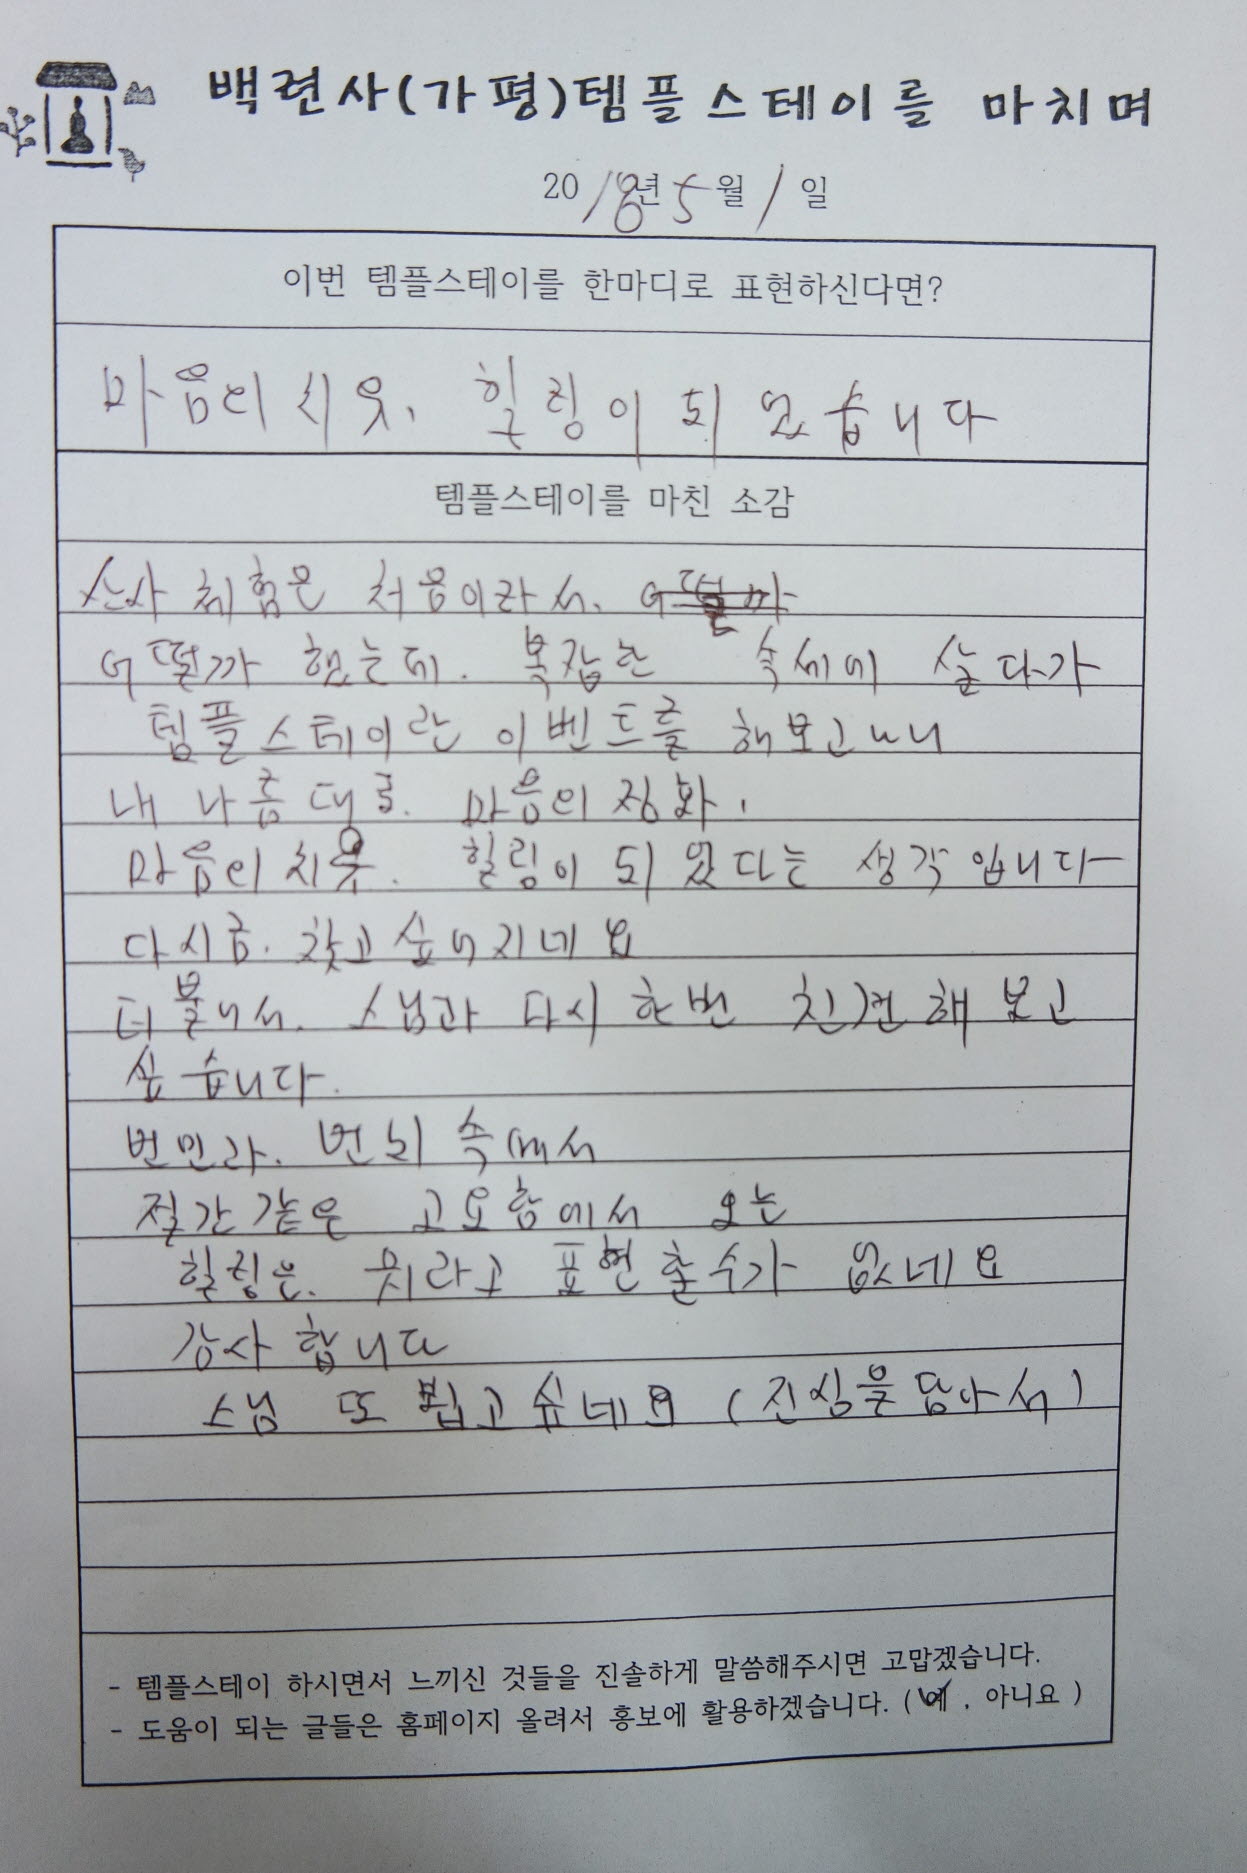 백련사(가평)템플스테이를 마치며
2018년 5월 1일
이번 템플스테이를 한마디로 표현하신다면?
마음의 치유, 힐링이 되었습니다
템플스테이를 마친 소감
산사 체험은 처음이라서. 어떨까
어떨까 했는데. 복잡한 속세에 살다가
템플스테이란 이벤트를 해보고나니
내 나름대로. 마음의 정화,
마음의 치유. 힐링이 되었다는 생각입니다
다시금. 찾고 싶어지네요
더불어서. 스님과 다시 한번 친견해 보고
싶습니다.
번민과. 번뇌 속에서
절간같은 고요함에서 오는
힐링은. 뭐라고 표현할 수가 없네요
감사합니다
스님 또 뵙고 싶네요 (진심을 담아서)
- 템플스테이 하시면서 느끼신 것들을 진솔하게 말씀해주시면 고맙겠습니다.
- 도움이 되는 글들은 홈페이지 올려서 홍보에 활용하겠습니다. ( 예 , 아니요 )